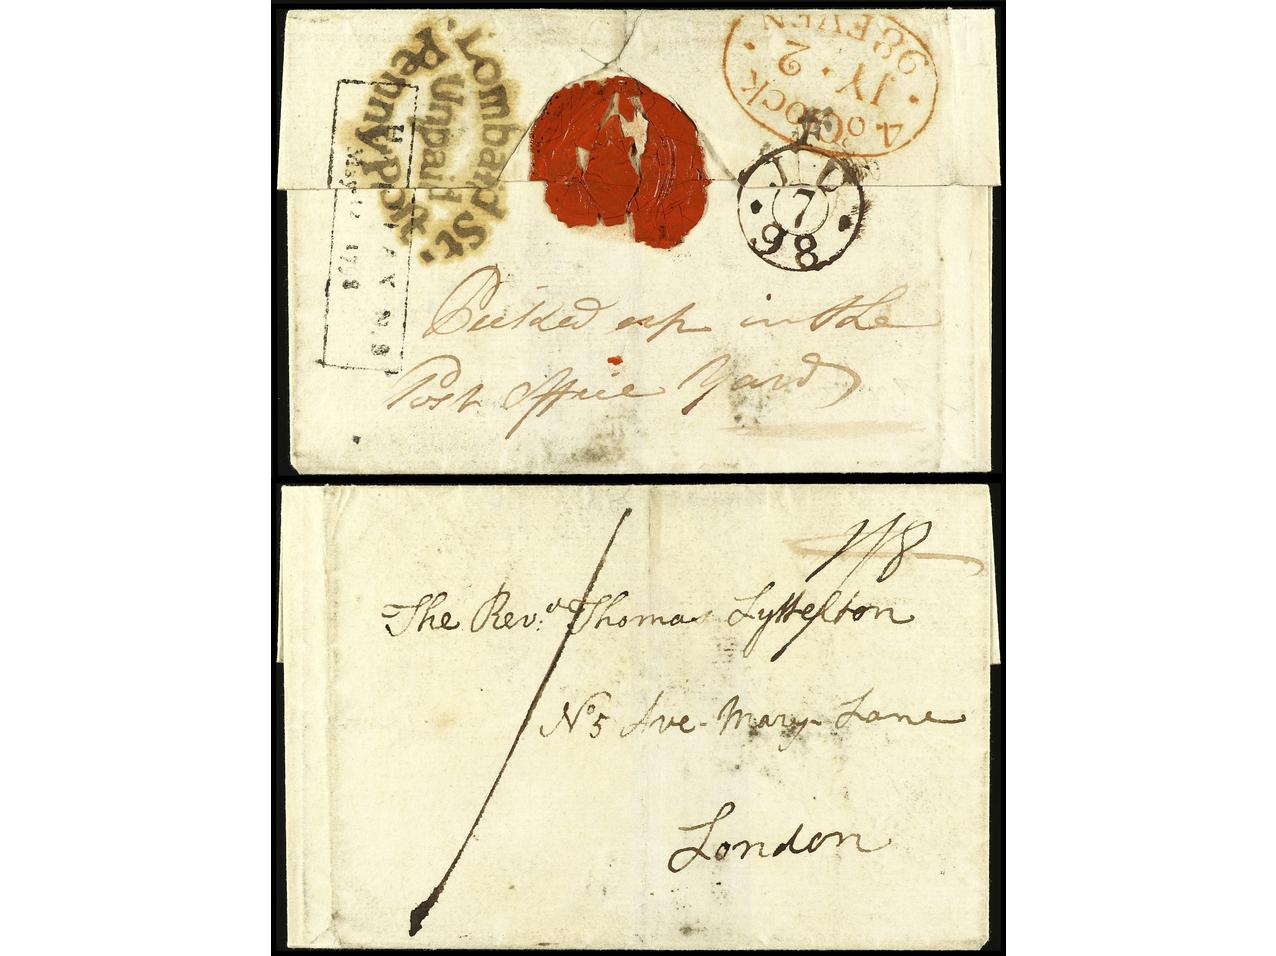 Lombard St.
Unpaid
Penny Post
4 o'Clock
JY. 2
98 EVEN
JU
7
98
Picked up in the
Post Office Yard
1/8
The Rev.d Thomas Lyttelton
No 5 Ave-Mary-Lane
London